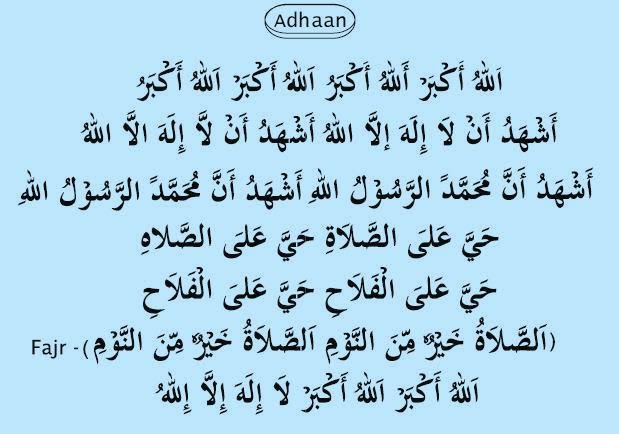 Adhaan
اَللهُ أَكْبَرْ أَللهُ أَكْبَرُ اَللهُ أَكْبَرْ اَللهُ أَكْبَرُ
أَشْهَدُ أَنْ لَا إِلَهَ إلَّا اللهُ أَشْهَدُ أَنْ لَّا إِلَهَ الَّا اللهُ
أَشْهَدُ أَنَّ مُحَمَّدً الرَّسُوْلُ اللهِ أَشْهَدُ أَنَّ مُحَمَّدً الرَّسُوْلُ اللهِ
حَيَّ عَلىَ الصَّلَاةِ حَيَّ عَلىَ الصَّلاهِ
حَيَّ عَلىَ الْفَلَاحِ حَيَّ عَلىَ الْفَلَاحِ
(اَلصَّلَاةُ خَيْرٌ مِّنَ النَّوْمِ اَلصَّلَاةُ خَيْرٌ مِّنَ النَّوْمِ) - Fajr
اَللهُ أَكْبَرْ اَللهُ أَكْبَرْ لَا إِلَهَ إِلَّا إِللهُ